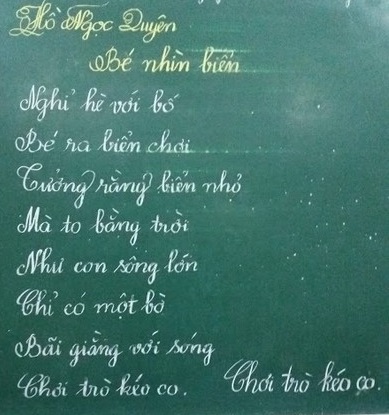 Hồ Ngọc Quyên
Bé nhìn biển
Nghỉ hè với bố
Bé ra biển chơi
Tưởng rằng biển nhỏ
Mà to bằng trời
Như con sông lớn
Chỉ có một bờ
Bãi giằng với sóng
Chơi trò kéo co.
Chơi trò kéo co.